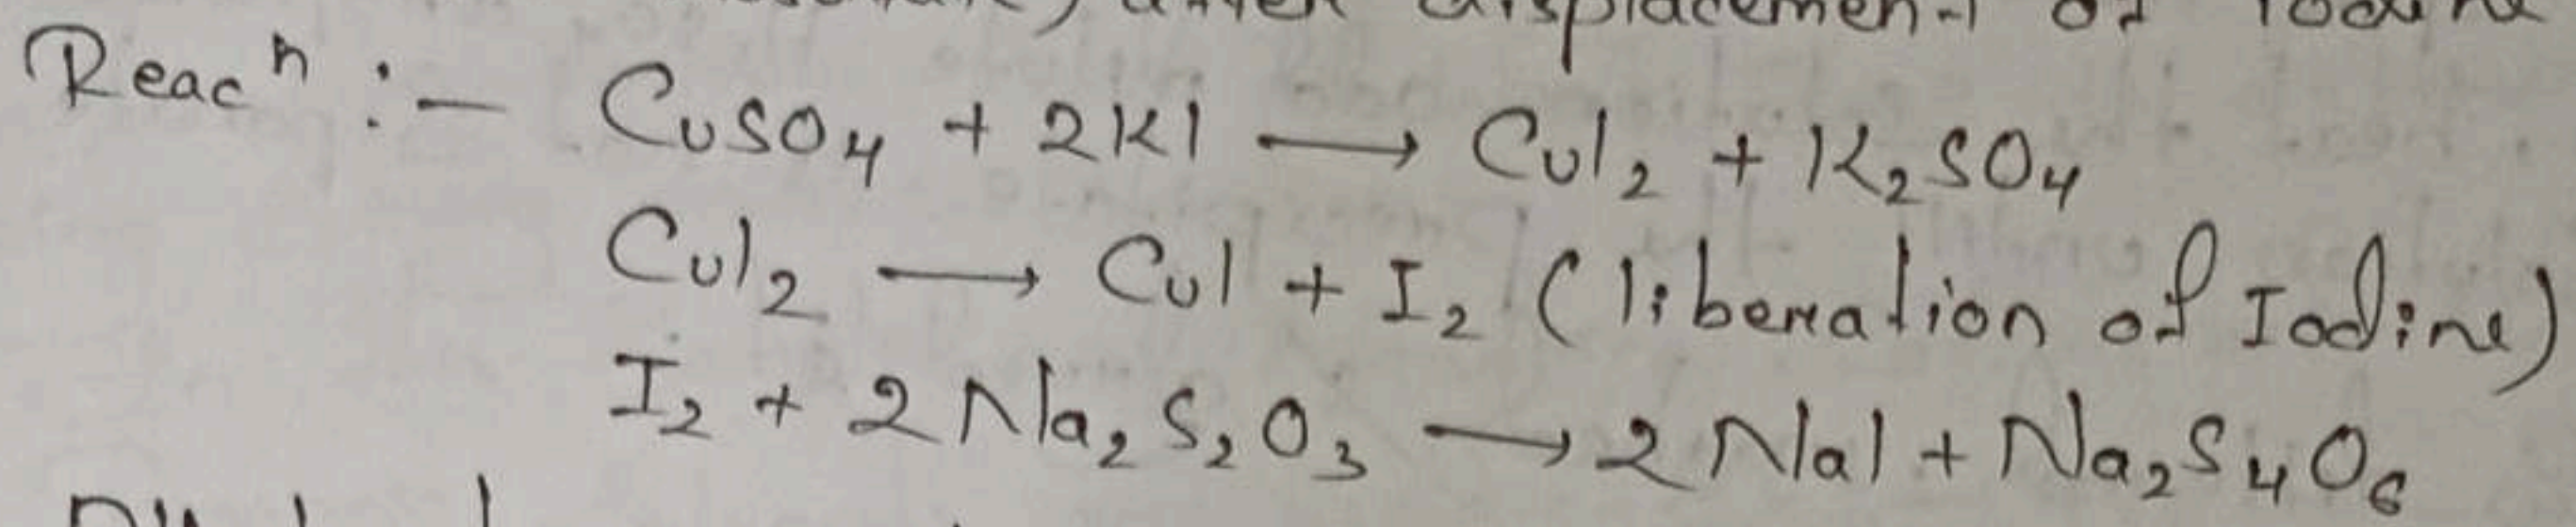 after displacement of Iodine
Reacⁿ :- CuSO₄ + 2KI ⟶ CuI₂ + K₂SO₄
CuI₂ ⟶ CuI + I₂ (liberation of Iodine)
I₂ + 2Na₂S₂O₃ ⟶ 2NaI + Na₂S₄O₆